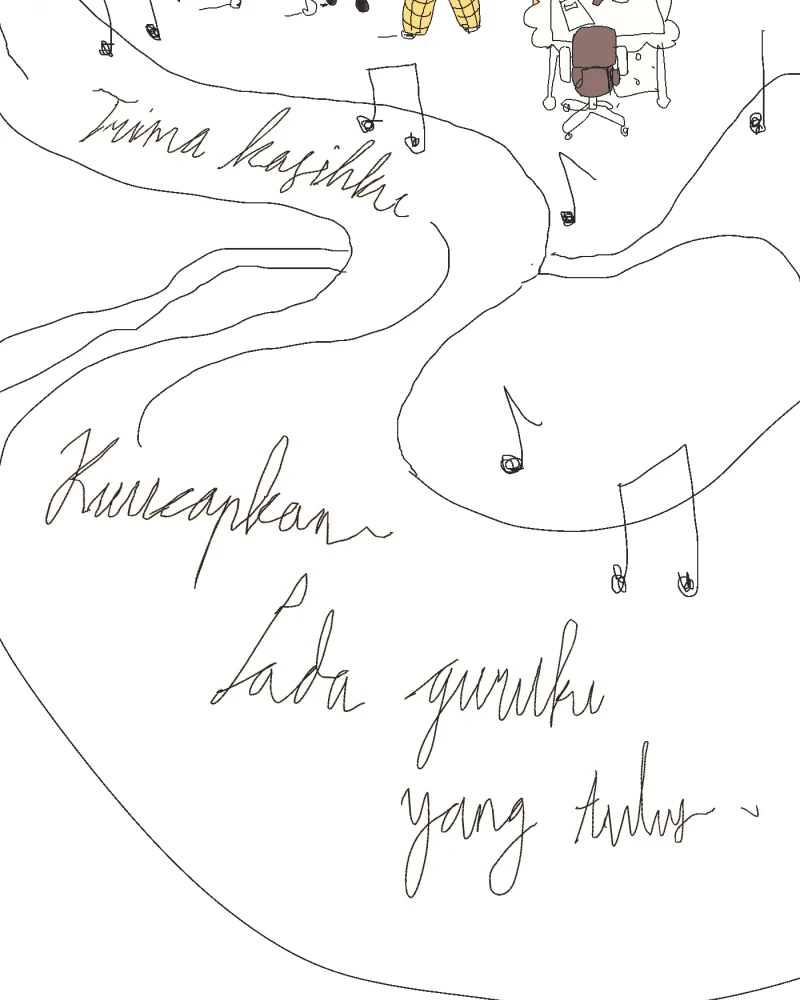 Trima kasihku
Kuucapkan
Pada guruku
yang tulus